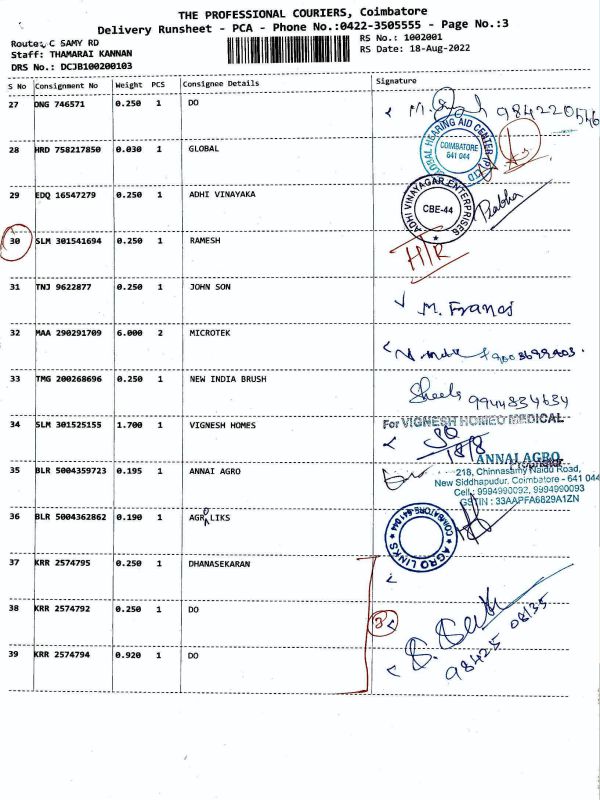 THE PROFESSIONAL COURIERS, Coimbatore
Delivery Runsheet - PCA - Phone No.:0422-3505555 - Page No.:3
Route: C SAMY RD
RS No.: 1002001
Staff: THAMARAI KANNAN
RS Date: 18-Aug-2022
DRS No.: DCJB100200103
S No Consignment No Weight PCS Consignee Details Signature
27 ONG 746571 0.250 1 DO
28 HRD 758217850 0.030 1 GLOBAL
GLOBAL HEARING AID CENTER
COIMBATORE
641 044
29 EDQ 16547279 0.250 1 ADHI VINAYAKA
ADHI VINAYAGAR ENTERPRISES
CBE-44
Prabha
30 SLM 301541694 0.250 1 RAMESH
31 TNJ 9622877 0.250 1 JOHN SON
M. Francis
32 MAA 290291709 6.000 2 MICROTEK
33 TMG 200268696 0.250 1 NEW INDIA BRUSH
9944834634
34 SLM 301525155 1.700 1 VIGNESH HOMES
For VIGNESH HOMEO MEDICAL
18/8
Proprietor
35 BLR 5004359723 0.195 1 ANNAI AGRO
ANNAI AGRO
218, Chinnasamy Naidu Road,
New Siddhapudur, Coimbatore - 641 044
Cell: 9994990092, 9994990093
GSTIN : 33AAPFA6829A1ZN
36 BLR 5004362862 0.190 1 AGROLIKS
AGRO LINKS
COIMBATORE-641 044
37 KRR 2574795 0.250 1 DHANASEKARAN
38 KRR 2574792 0.250 1 DO
3
39 KRR 2574794 0.920 1 DO
98425 08135